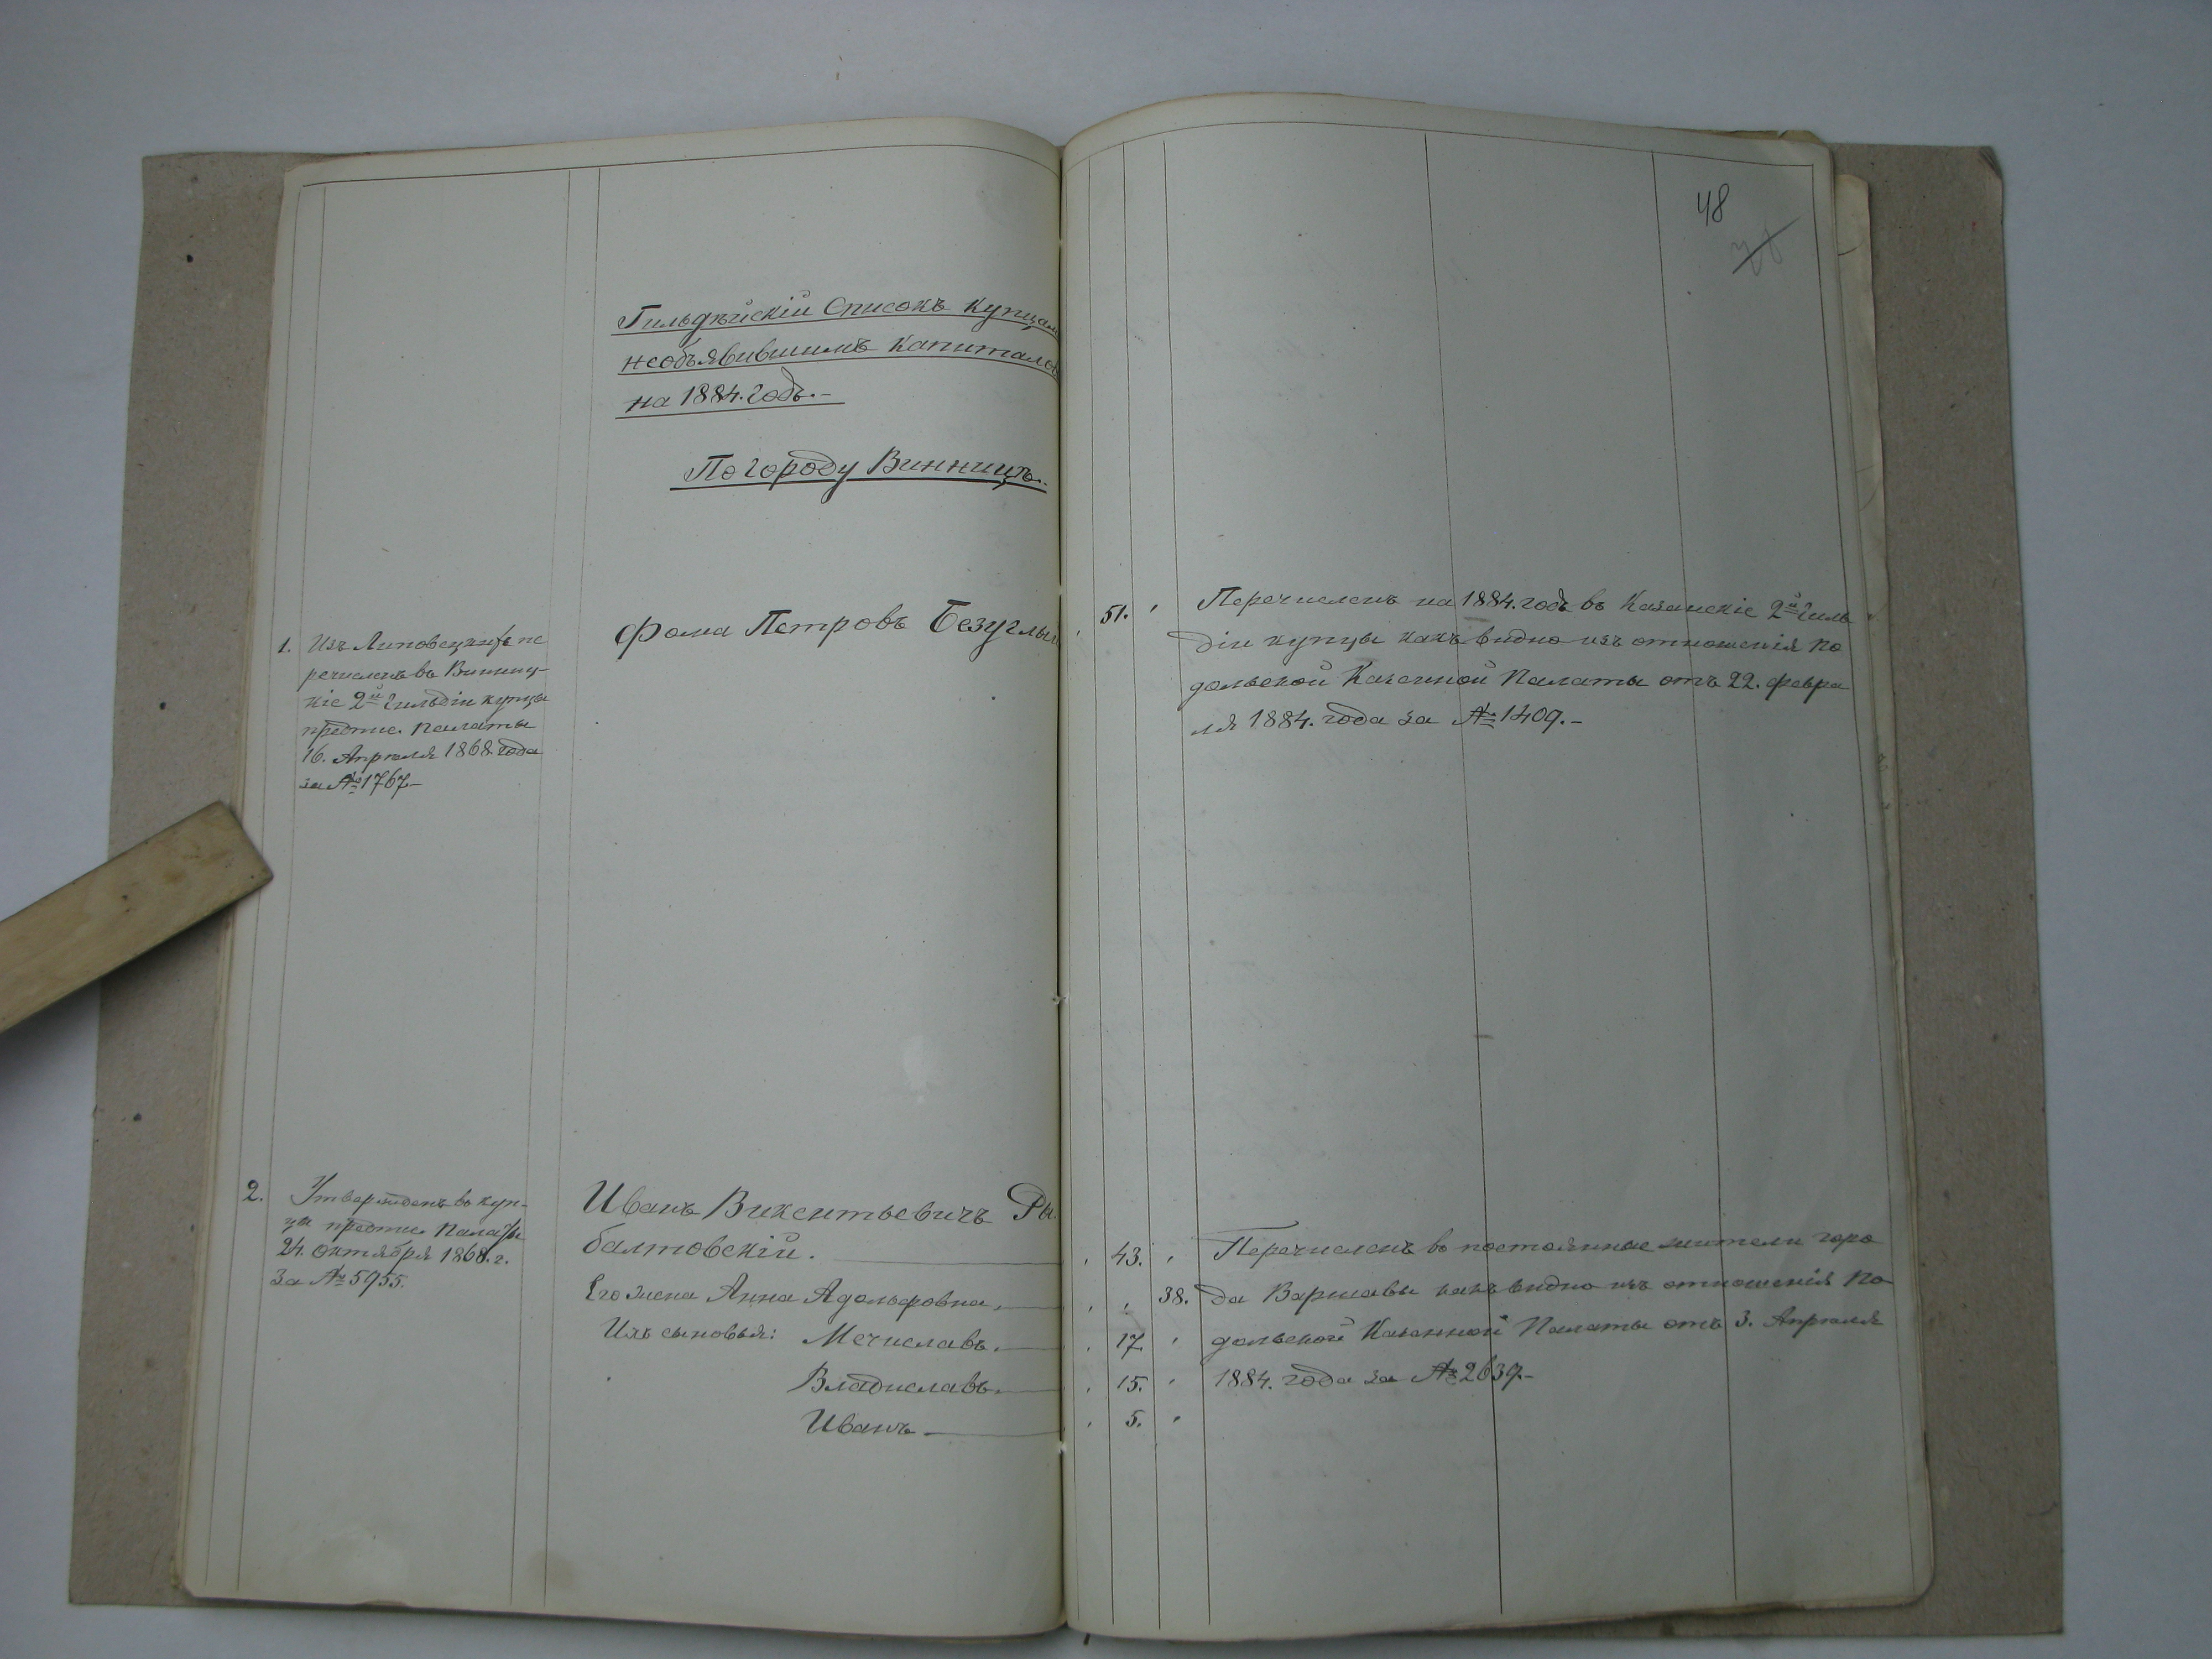 48
Гильдѣйскій Списокъ Купцам
необъявившимъ Капиталов
на 1884. годъ.-
По городу Винницѣ.
1. Изъ Липовецкихъ пе
речисленъ въ Винниц-
кіе 2й Гильдіи купцы
предпис. Палаты
16. Апрѣля 1868 года
за № 1767-
Фома Петровъ Безуглый
51. Перечисленъ на 1884. годъ въ Казанскіе 2й Гиль
діи купцы какъ видно изъ отношенія По
дольской Казенной Палаты отъ 22. Февра
ля 1884. года за № 1409.-
2. Утвержденъ въ куп-
цы предпис. Палаты
24. Октября 1868. г.
за № 5955.
Иванъ Викентьевичъ Ры
балтовскій.
Его жена Анна Адольфовна.
Ихъ сыновья: Мечиславъ.
Владиславъ.
Иванъ
43. Перечисленъ въ постоянные жители горо
38. да Варшавы какъ видно изъ отношенія По
17. дольской Казенной Палаты отъ 3. Апрѣля
15. 1884. года за № 2639.-
5.